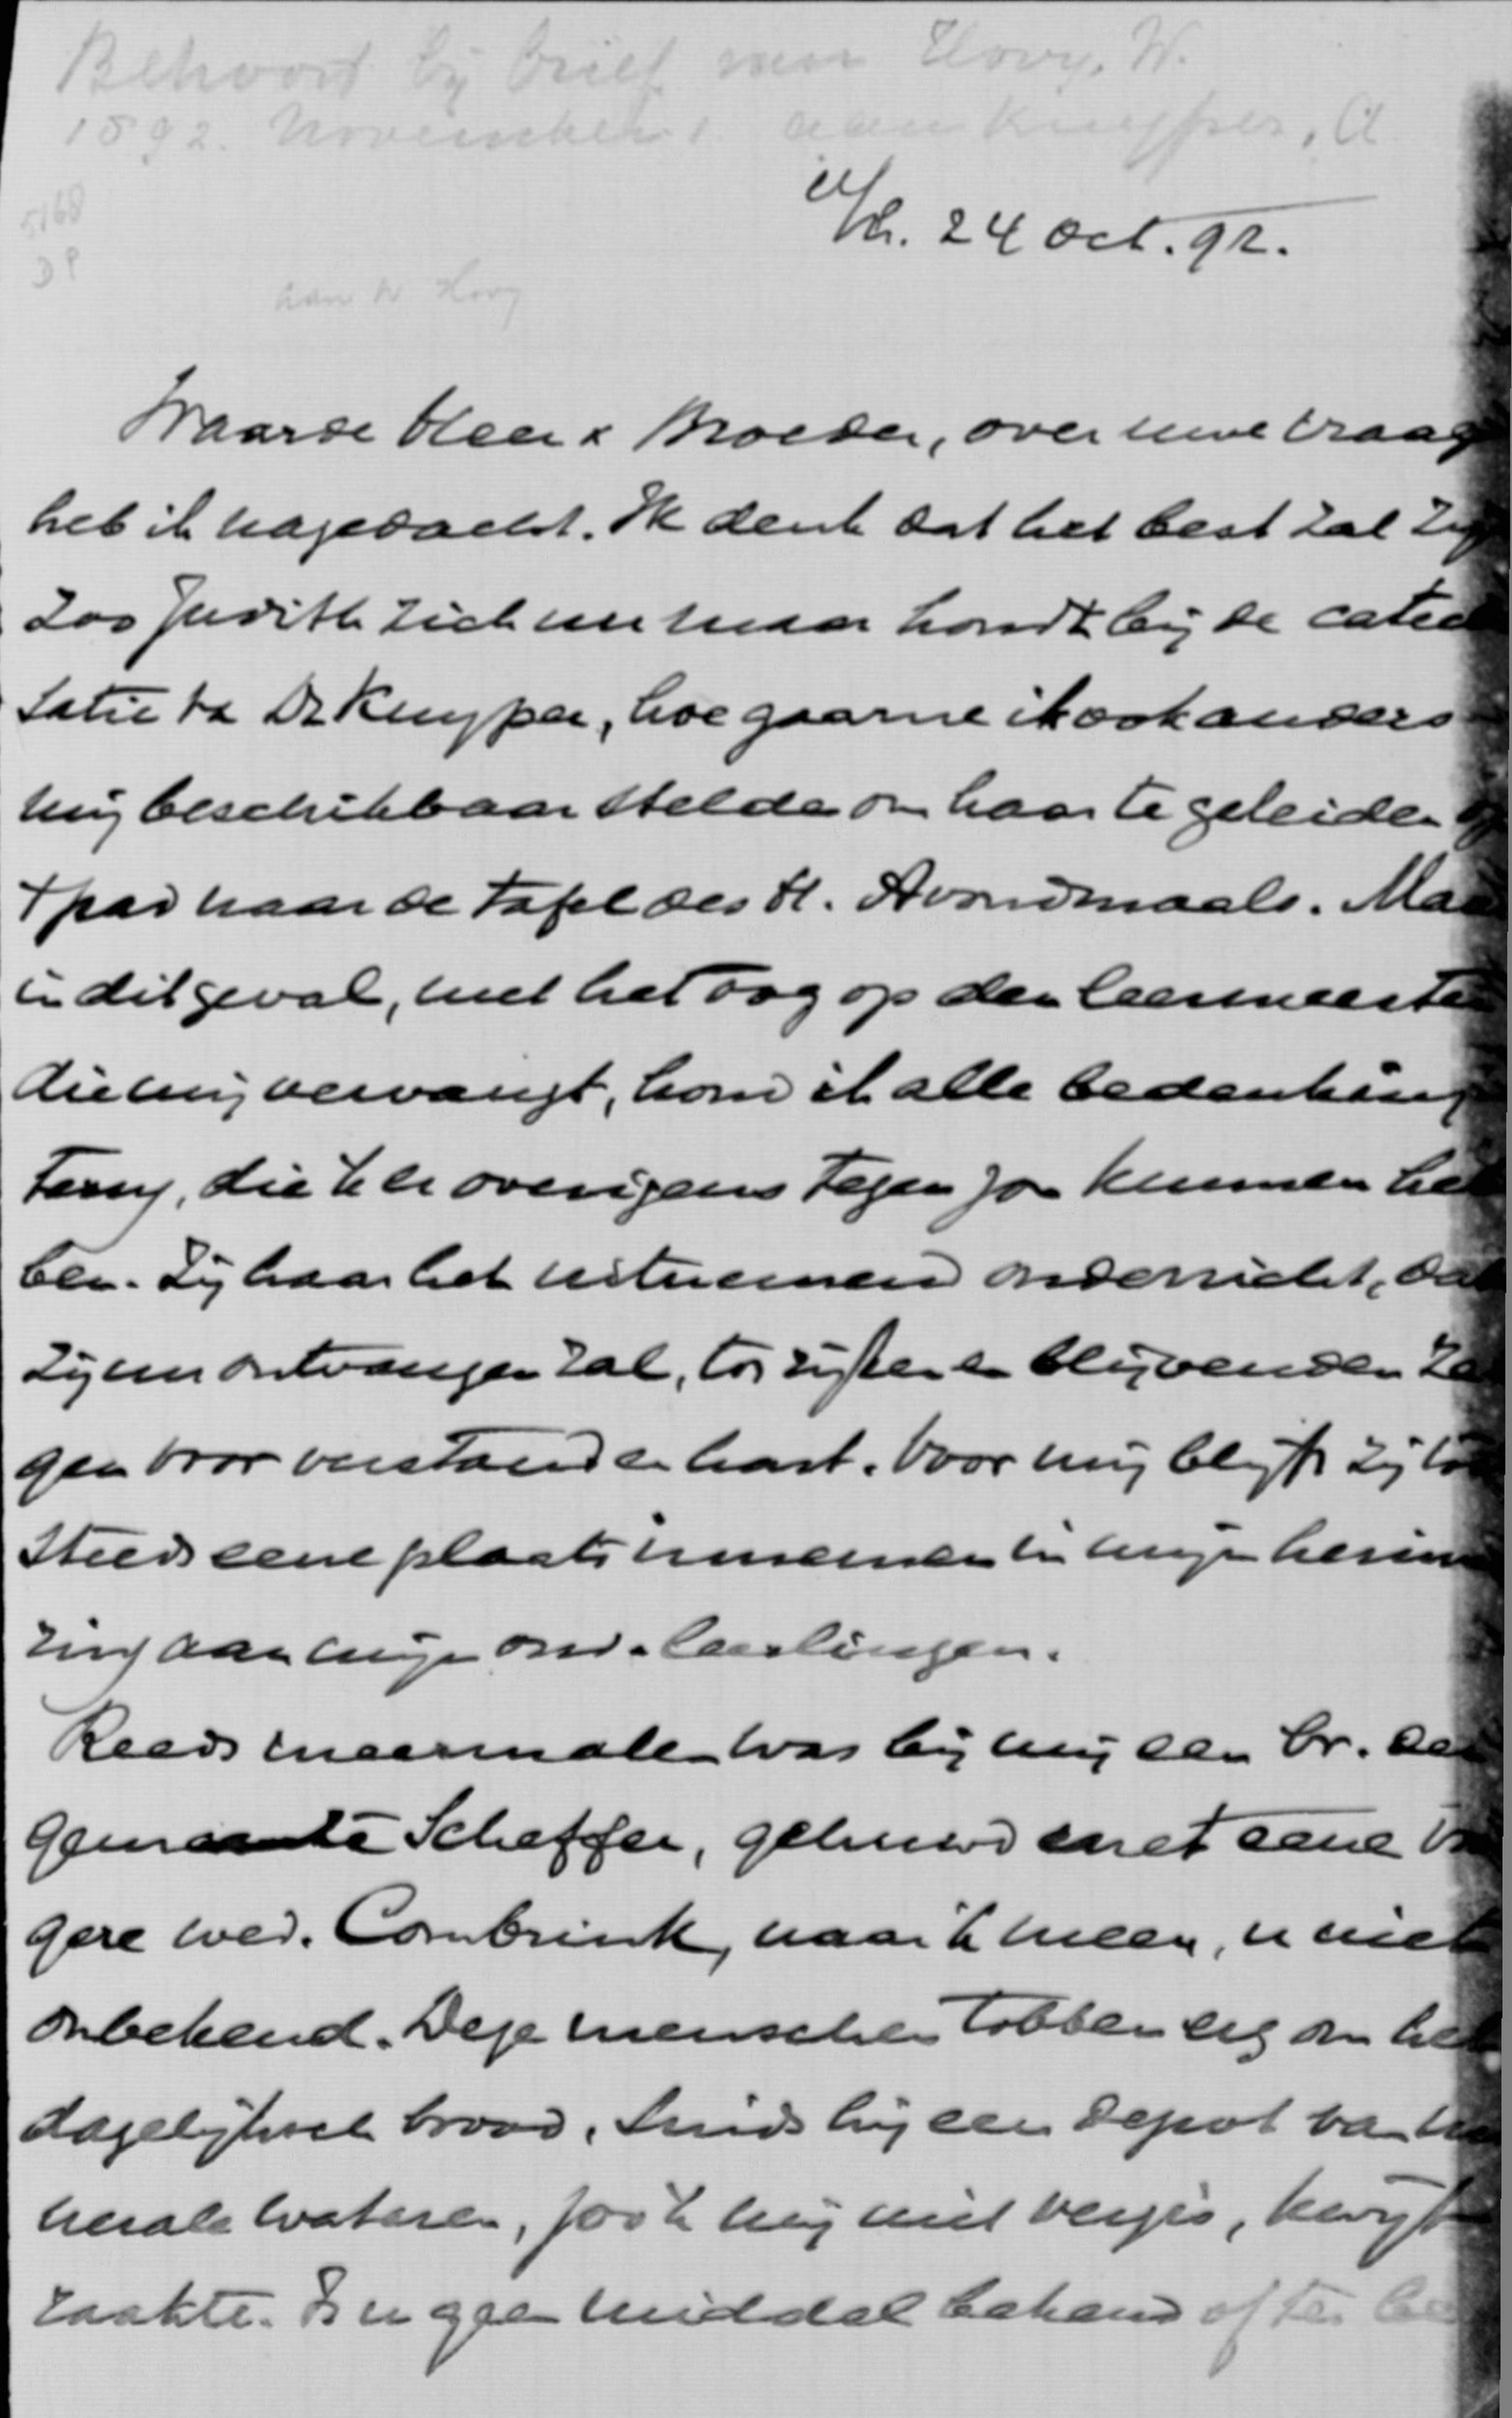 Behoort bij brief van Hovy, W.
1892. November 1. aan Kuyper, A
5168
DP
A/h. 24 Oct. 92.
aan W Hovy
Waarde Heer & Broeder, over uwe vraag
heb ik nagedacht. Ik denk dat het best zal zij
zoo Judith zich nu maar houdt bij de catec
satie va Dr Kuyper, hoe gaarne ik ook anders
mij beschikbaar stelde om haar te geleiden op
t pad naar de Tafel des H. Avondmaals. Maa
in dit geval, met het oog op den leermeester
die mij vervangt, houd ik alle bedenking
terug, die ik er overigens tegen zou kunnen heb
ben. Zij haar het uitnemend onderricht, dat
zij nu ontvangen zal, tot rijken en blijvenden ze
gen voor verstand en hart. Voor mij blijft zij to
steeds eene plaats innemen in mijn herinne
ring aan mijn oud-leerlingen.
Reeds meermalen was bij mij een br. der
gemeente Scheffer, gehuwd met eene vr
gere wed. Combrink, naar ik meen, u niet
onbekend. Deze menschen tobben erg om het
dagelijksch brood, sinds hij een depot van mi
nerale wateren, zoo ik mij niet vergis, kwijt
raakte. Is u geen middel bekend of ter be